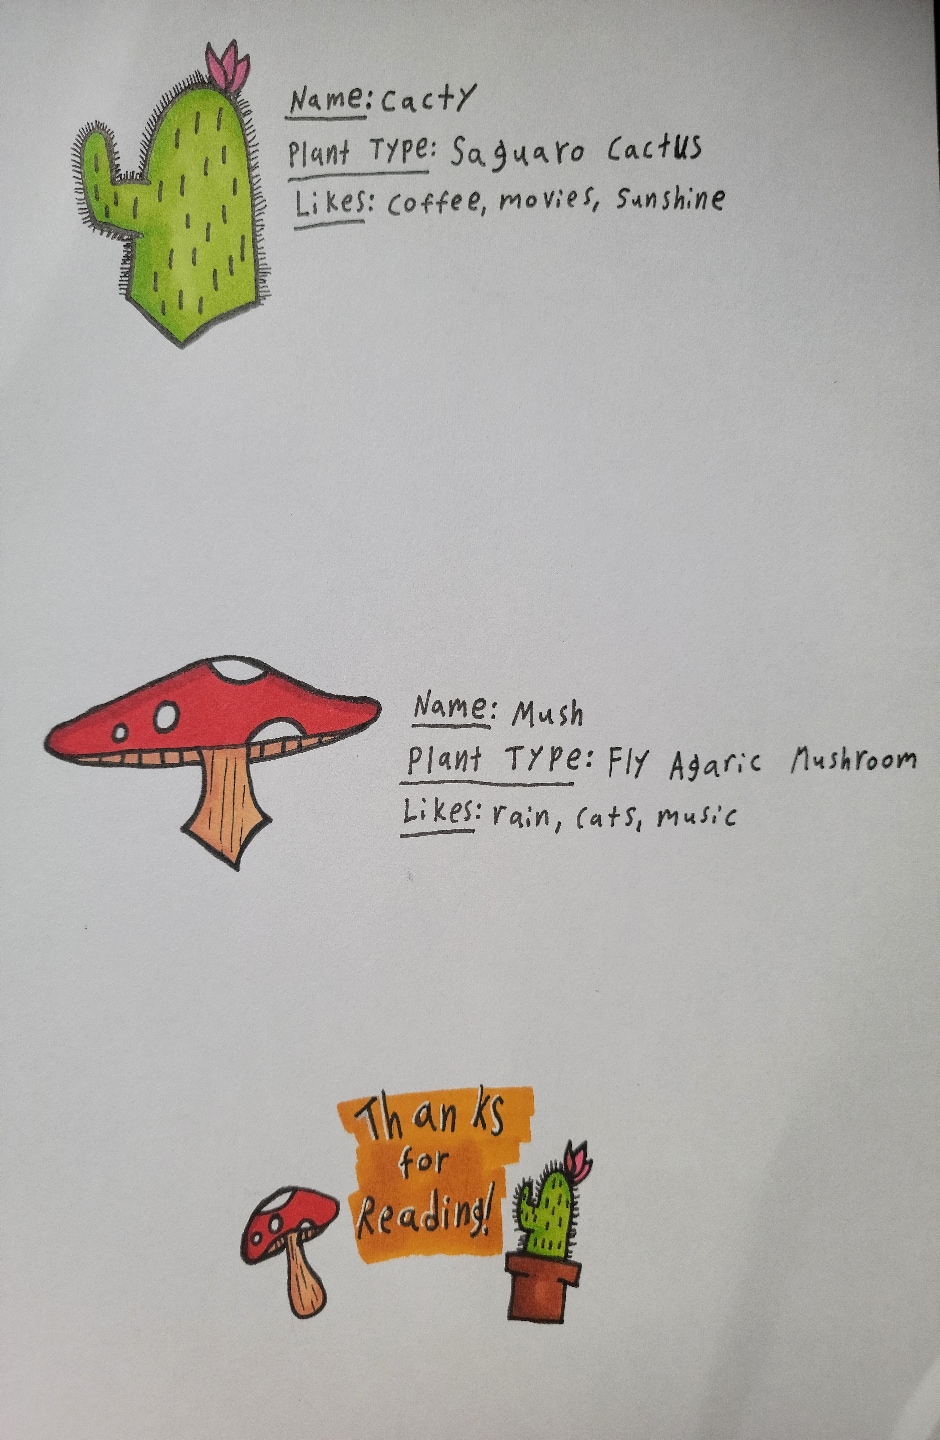 Name: Cacty
Plant Type: Saguaro Cactus
Likes: coffee, movies, sunshine
Name: Mush
Plant Type: Fly Agaric Mushroom
Likes: rain, cats, music
Thanks
for
Reading!